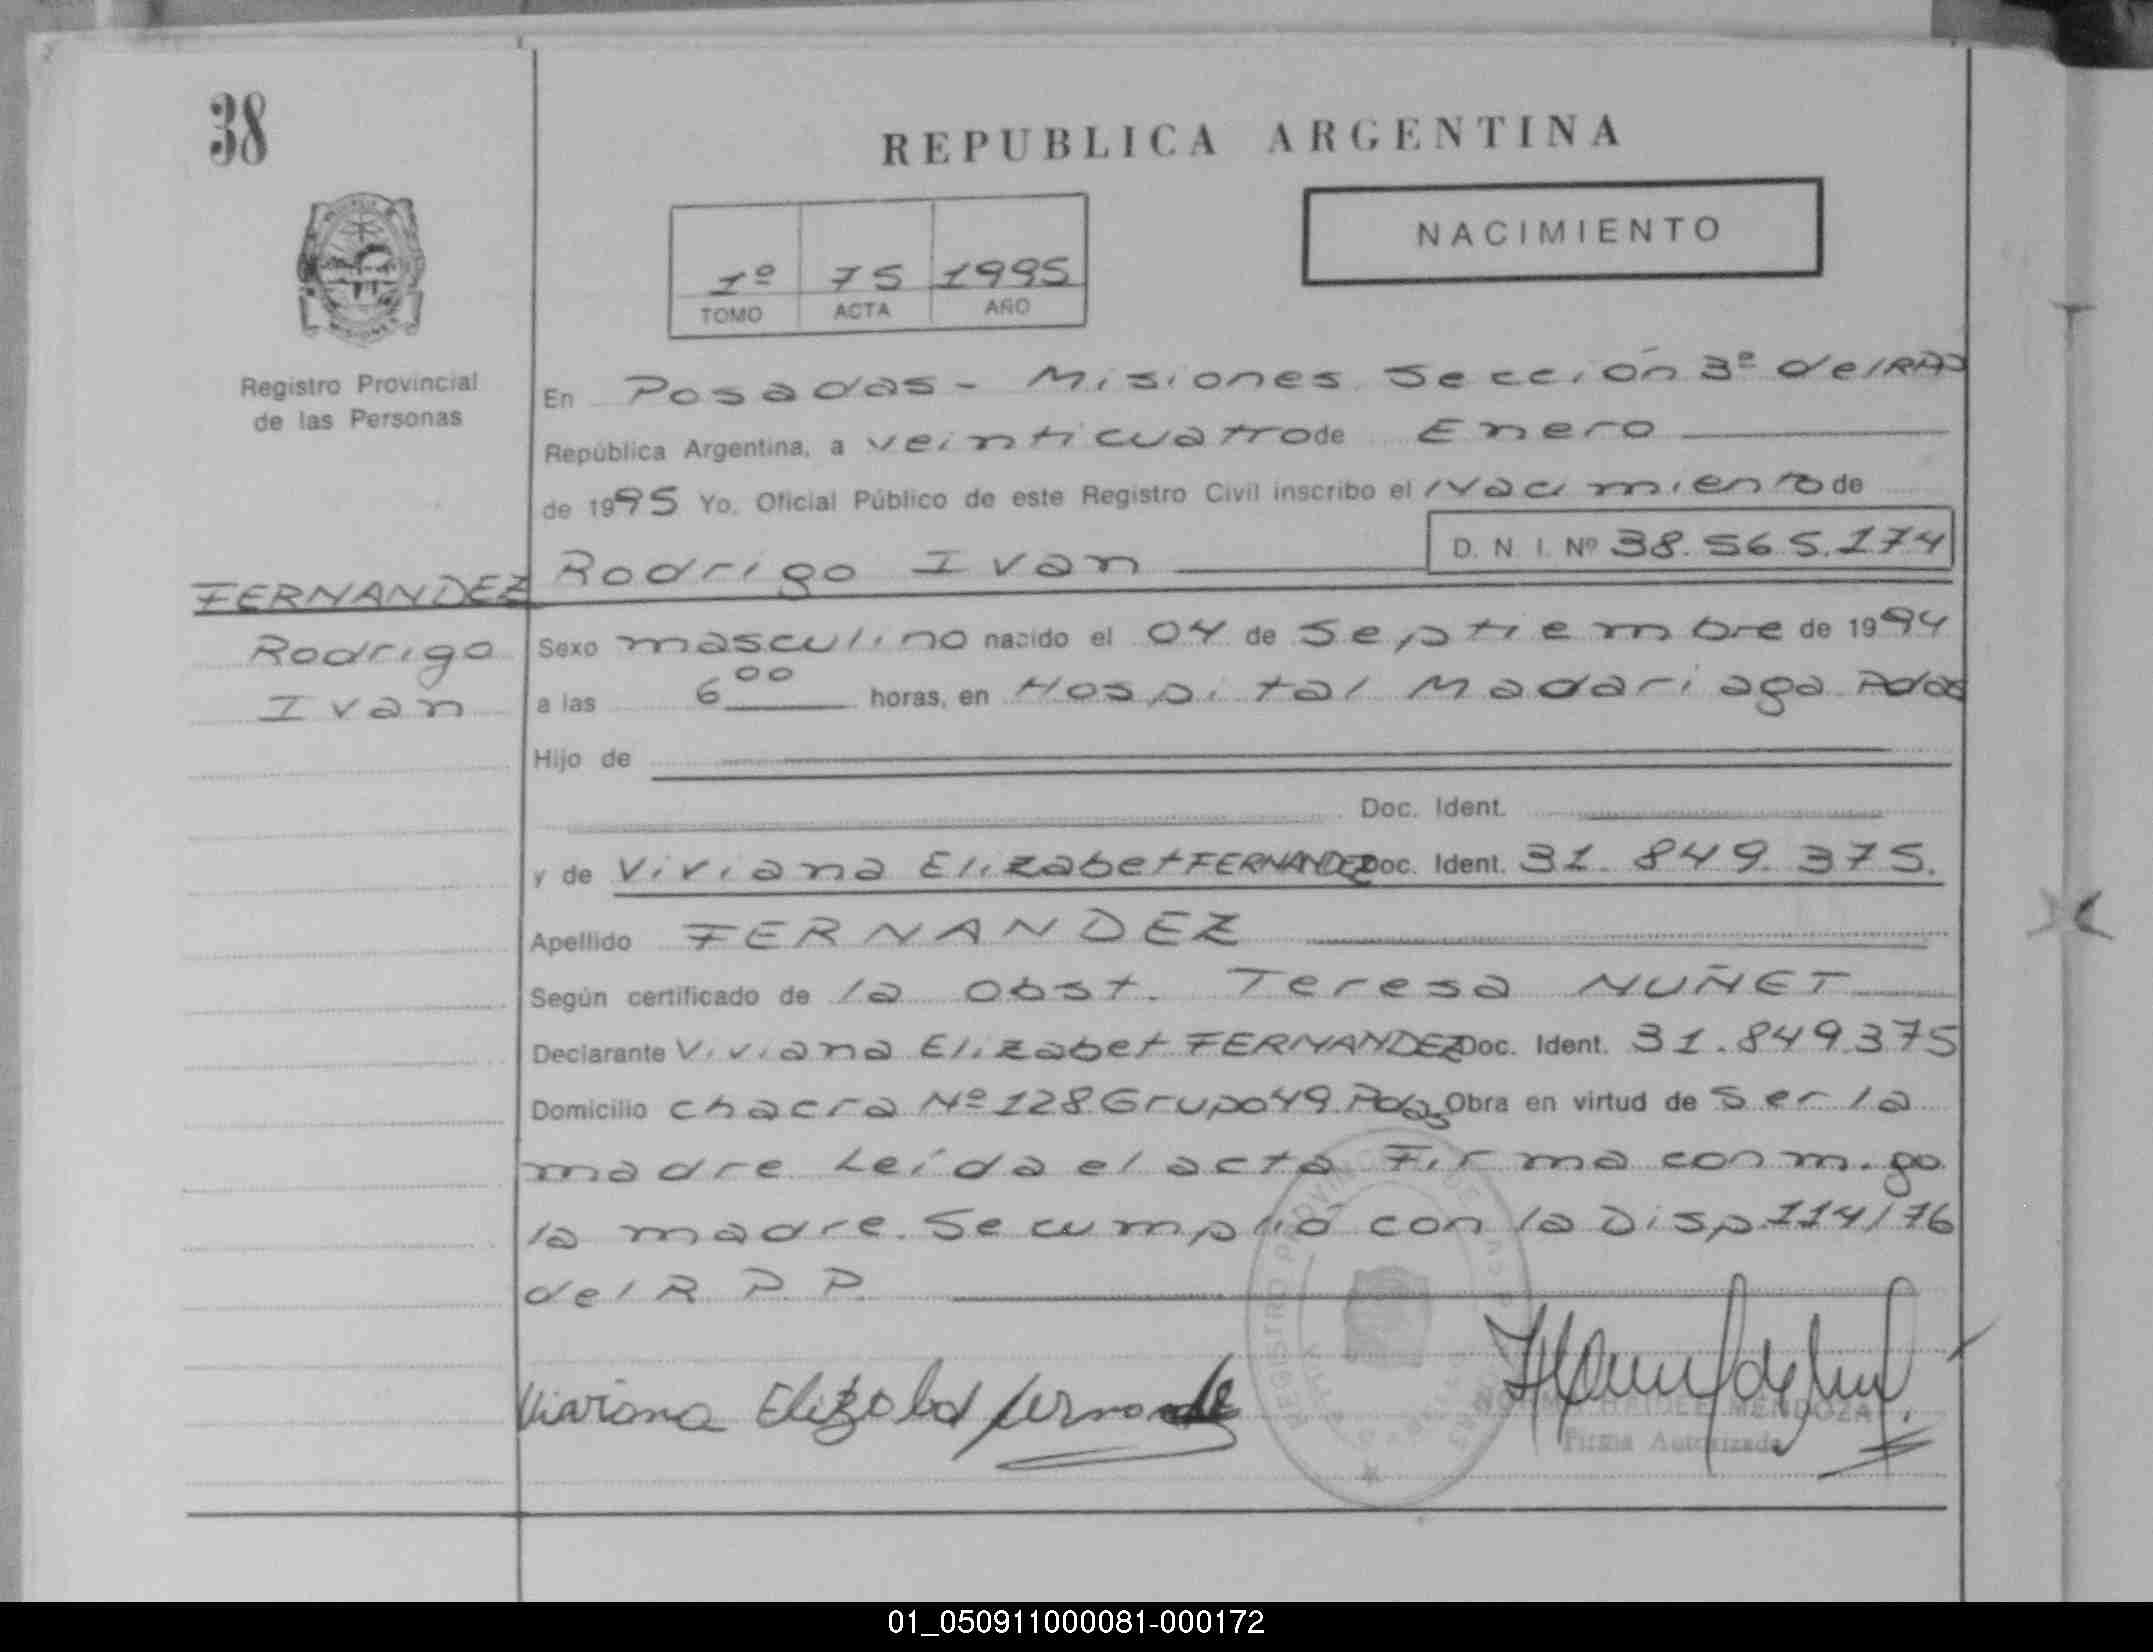 38
REPUBLICA ARGENTINA
NACIMIENTO
1º 75 1995
TOMO ACTA AÑO
Registro Provincial
de las Personas
En Posadas - Misiones Sección 3º del RPP
República Argentina, a veinticuatro de Enero
de 1995 Yo, Oficial Público de este Registro Civil inscribo el Nacimiento de
Rodrigo Ivan D. N. I. Nº 38.565.174
FERNANDEZ
Rodrigo
Ivan
Sexo masculino nacido el 04 de Septiembre de 1994
a las 6 00 horas, en Hospital Madariaga Pdas
Hijo de
Doc. Ident.
y de Viviana Elizabet FERNANDEZ Doc. Ident. 31.849.375.
Apellido FERNANDEZ
Según certificado de la Obst. Teresa NUÑET
Declarante Viviana Elizabet FERNANDEZ Doc. Ident. 31.849.375
Domicilio chacra Nº 128 Grupo 49 Pdas Obra en virtud de Ser la
madre Leída el acta Firma conmigo
la madre. Se cumplió con la Disp 114/76
del R P P
Viviana Elizabet Fernandez
REGISTRO PROVINCIAL DE LAS PERSONAS
NORMA HAIDEE MENDOZA
Firma Autorizada
01_050911000081-000172